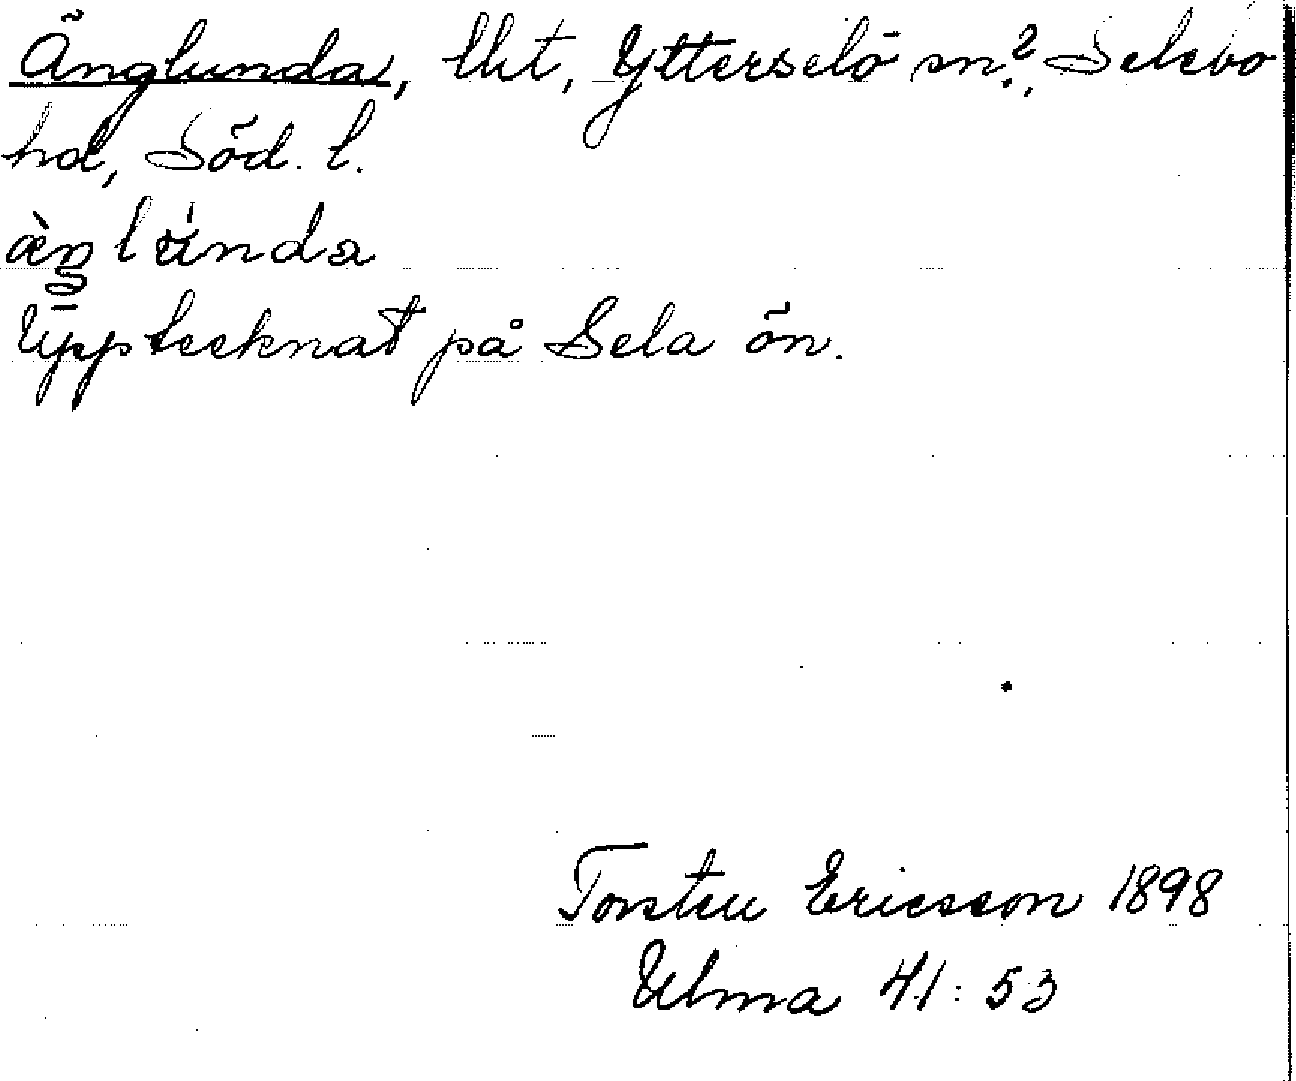 Änglunda, lht, Ytterselö sn?, Selebo
hd, Söd. l.
æ̀ŋlún̈da
Upptecknat på Sela ön.
Torsten Ericsson 1898
Ulma 41:53